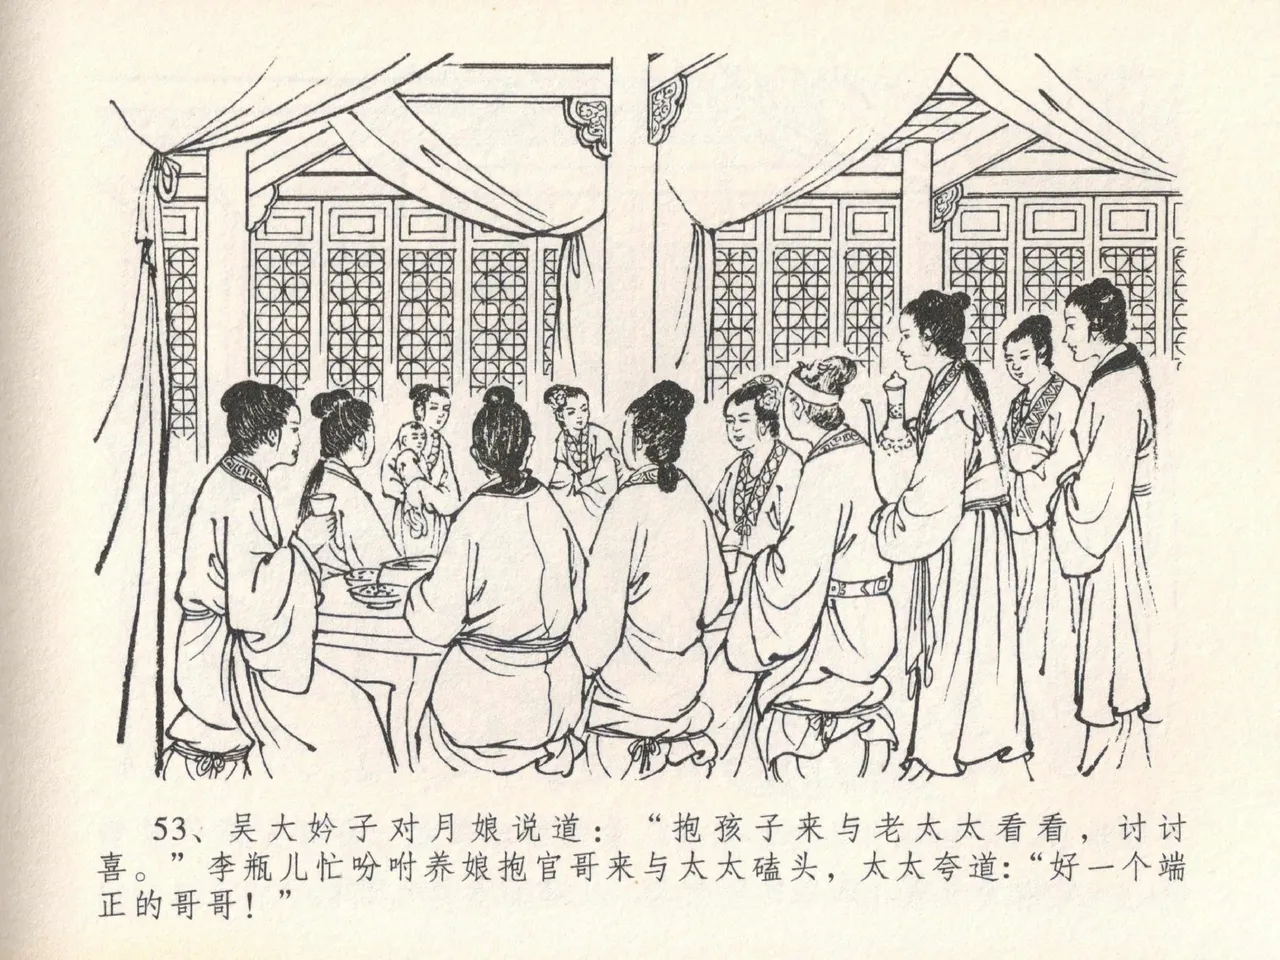 53、吴大妗子对月娘说道：“抱孩子来与老太太看看，讨讨
喜。”李瓶儿忙吩咐养娘抱官哥来与太太磕头，太太夸道：“好一个端
正的哥哥！”